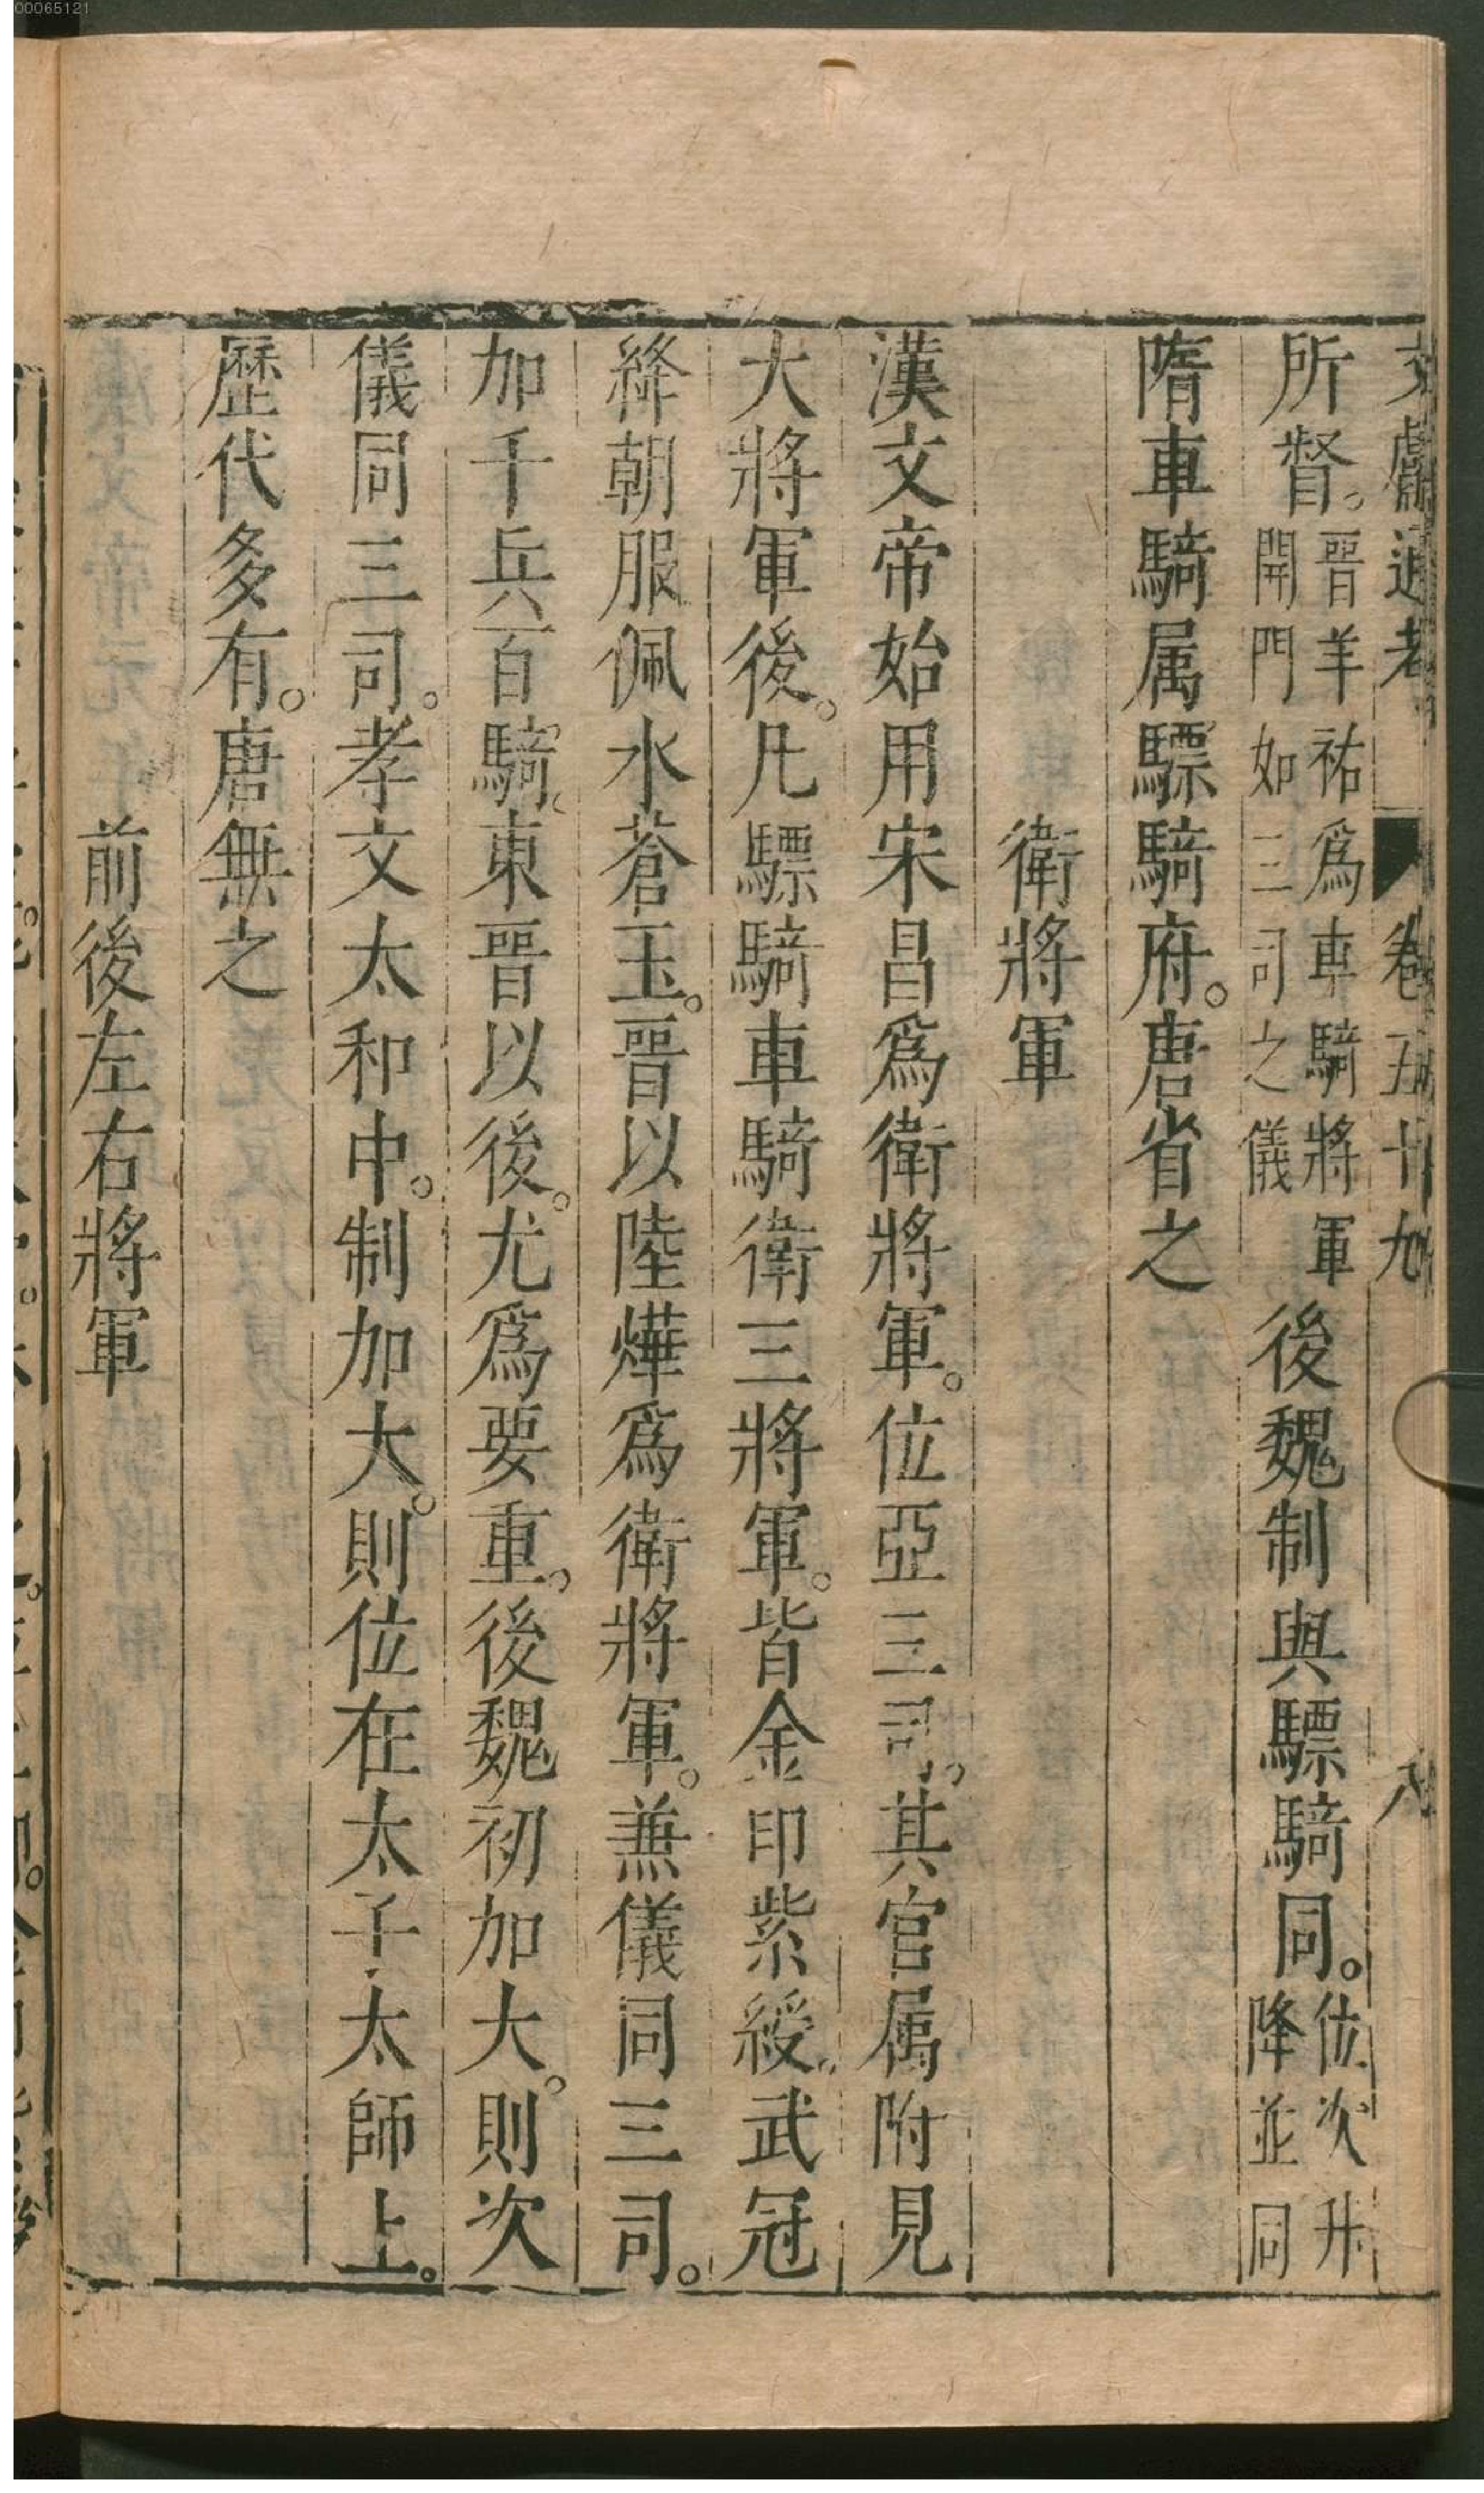 00065121
文獻通考 卷五十九 八
所督。晋羊祐爲車騎將軍開門如三司之儀後魏制與驃騎同。位次升降並同
隋車騎属驃騎府。唐省之
衛將軍
漢文帝始用宋昌爲衛將軍。位亞三司。其官属附見
大將軍後。凡驃騎車騎衛三將軍。皆金印紫綬。武冠
絳朝服佩水蒼玉。晋以陸燁爲衛將軍。兼儀同三司。
加千兵百騎。東晋以後。尤爲要重。後魏初加大。則次
儀同三司。孝文太和中。制加大。則位在太子太師上。
歷代多有。唐無之
前後左右將軍